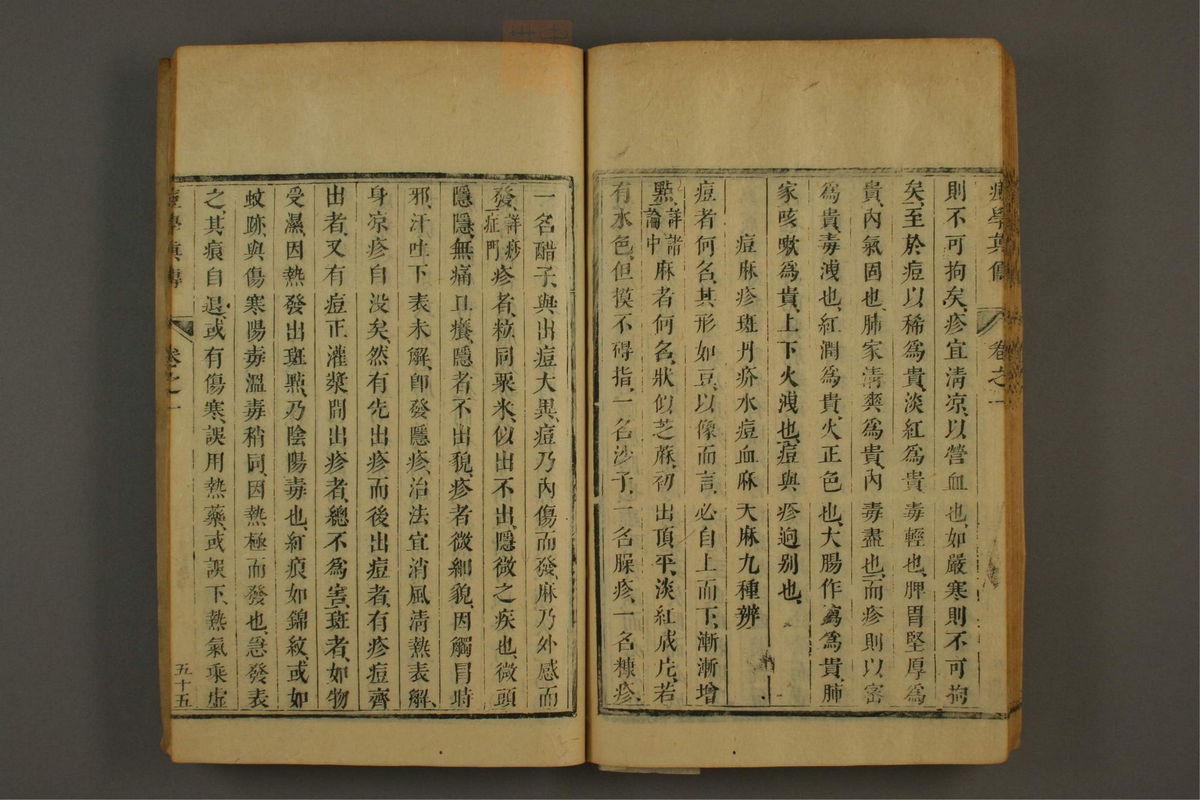 痘學真傳 卷之一
則不可拘矣疹宜淸凉以營血也如嚴寒則不可拘
矣至於痘以稀爲貴淡紅爲貴毒輕也脾胃堅厚爲
貴內氣固也肺家淸爽爲貴內毒盡也而疹則以密
爲貴毒洩也紅潤爲貴火正色也大腸作瀉爲貴肺
家咳嗽爲貴上下火洩也痘與疹逈别也
痘麻疹斑丹疥水痘血麻天麻九種辨
痘者何名其形如豆以像而言必自上而下漸漸增
點詳諸論中麻者何名狀似芝蔴初出頂平淡紅成片若
有水色但摸不碍指一名沙子一名臊疹一名糠疹
一名醋子與出痘大異痘乃內傷而發麻乃外感而
發詳痧症門疹者粒同粟米似出不出隱微之疾也微頭
隱隱無痛且癢隱者不出貌疹者微細貌因觸冒時
邪汗吐下表未解卽發隱疹治法宜消風淸熱表解
身凉疹自没矣然有先出疹而後出痘者有疹痘齊
出者又有痘正灌漿間出疹者總不爲害斑者如物
受濕因熱發出斑點乃陰陽毒也紅痕如錦紋或如
蚊跡與傷寒陽毒溫毒稍同因熱極而發也急發表
之其痕自退或有傷寒誤用熱藥或誤下熱氣乘虛
痘學真傳 卷之一 五十五